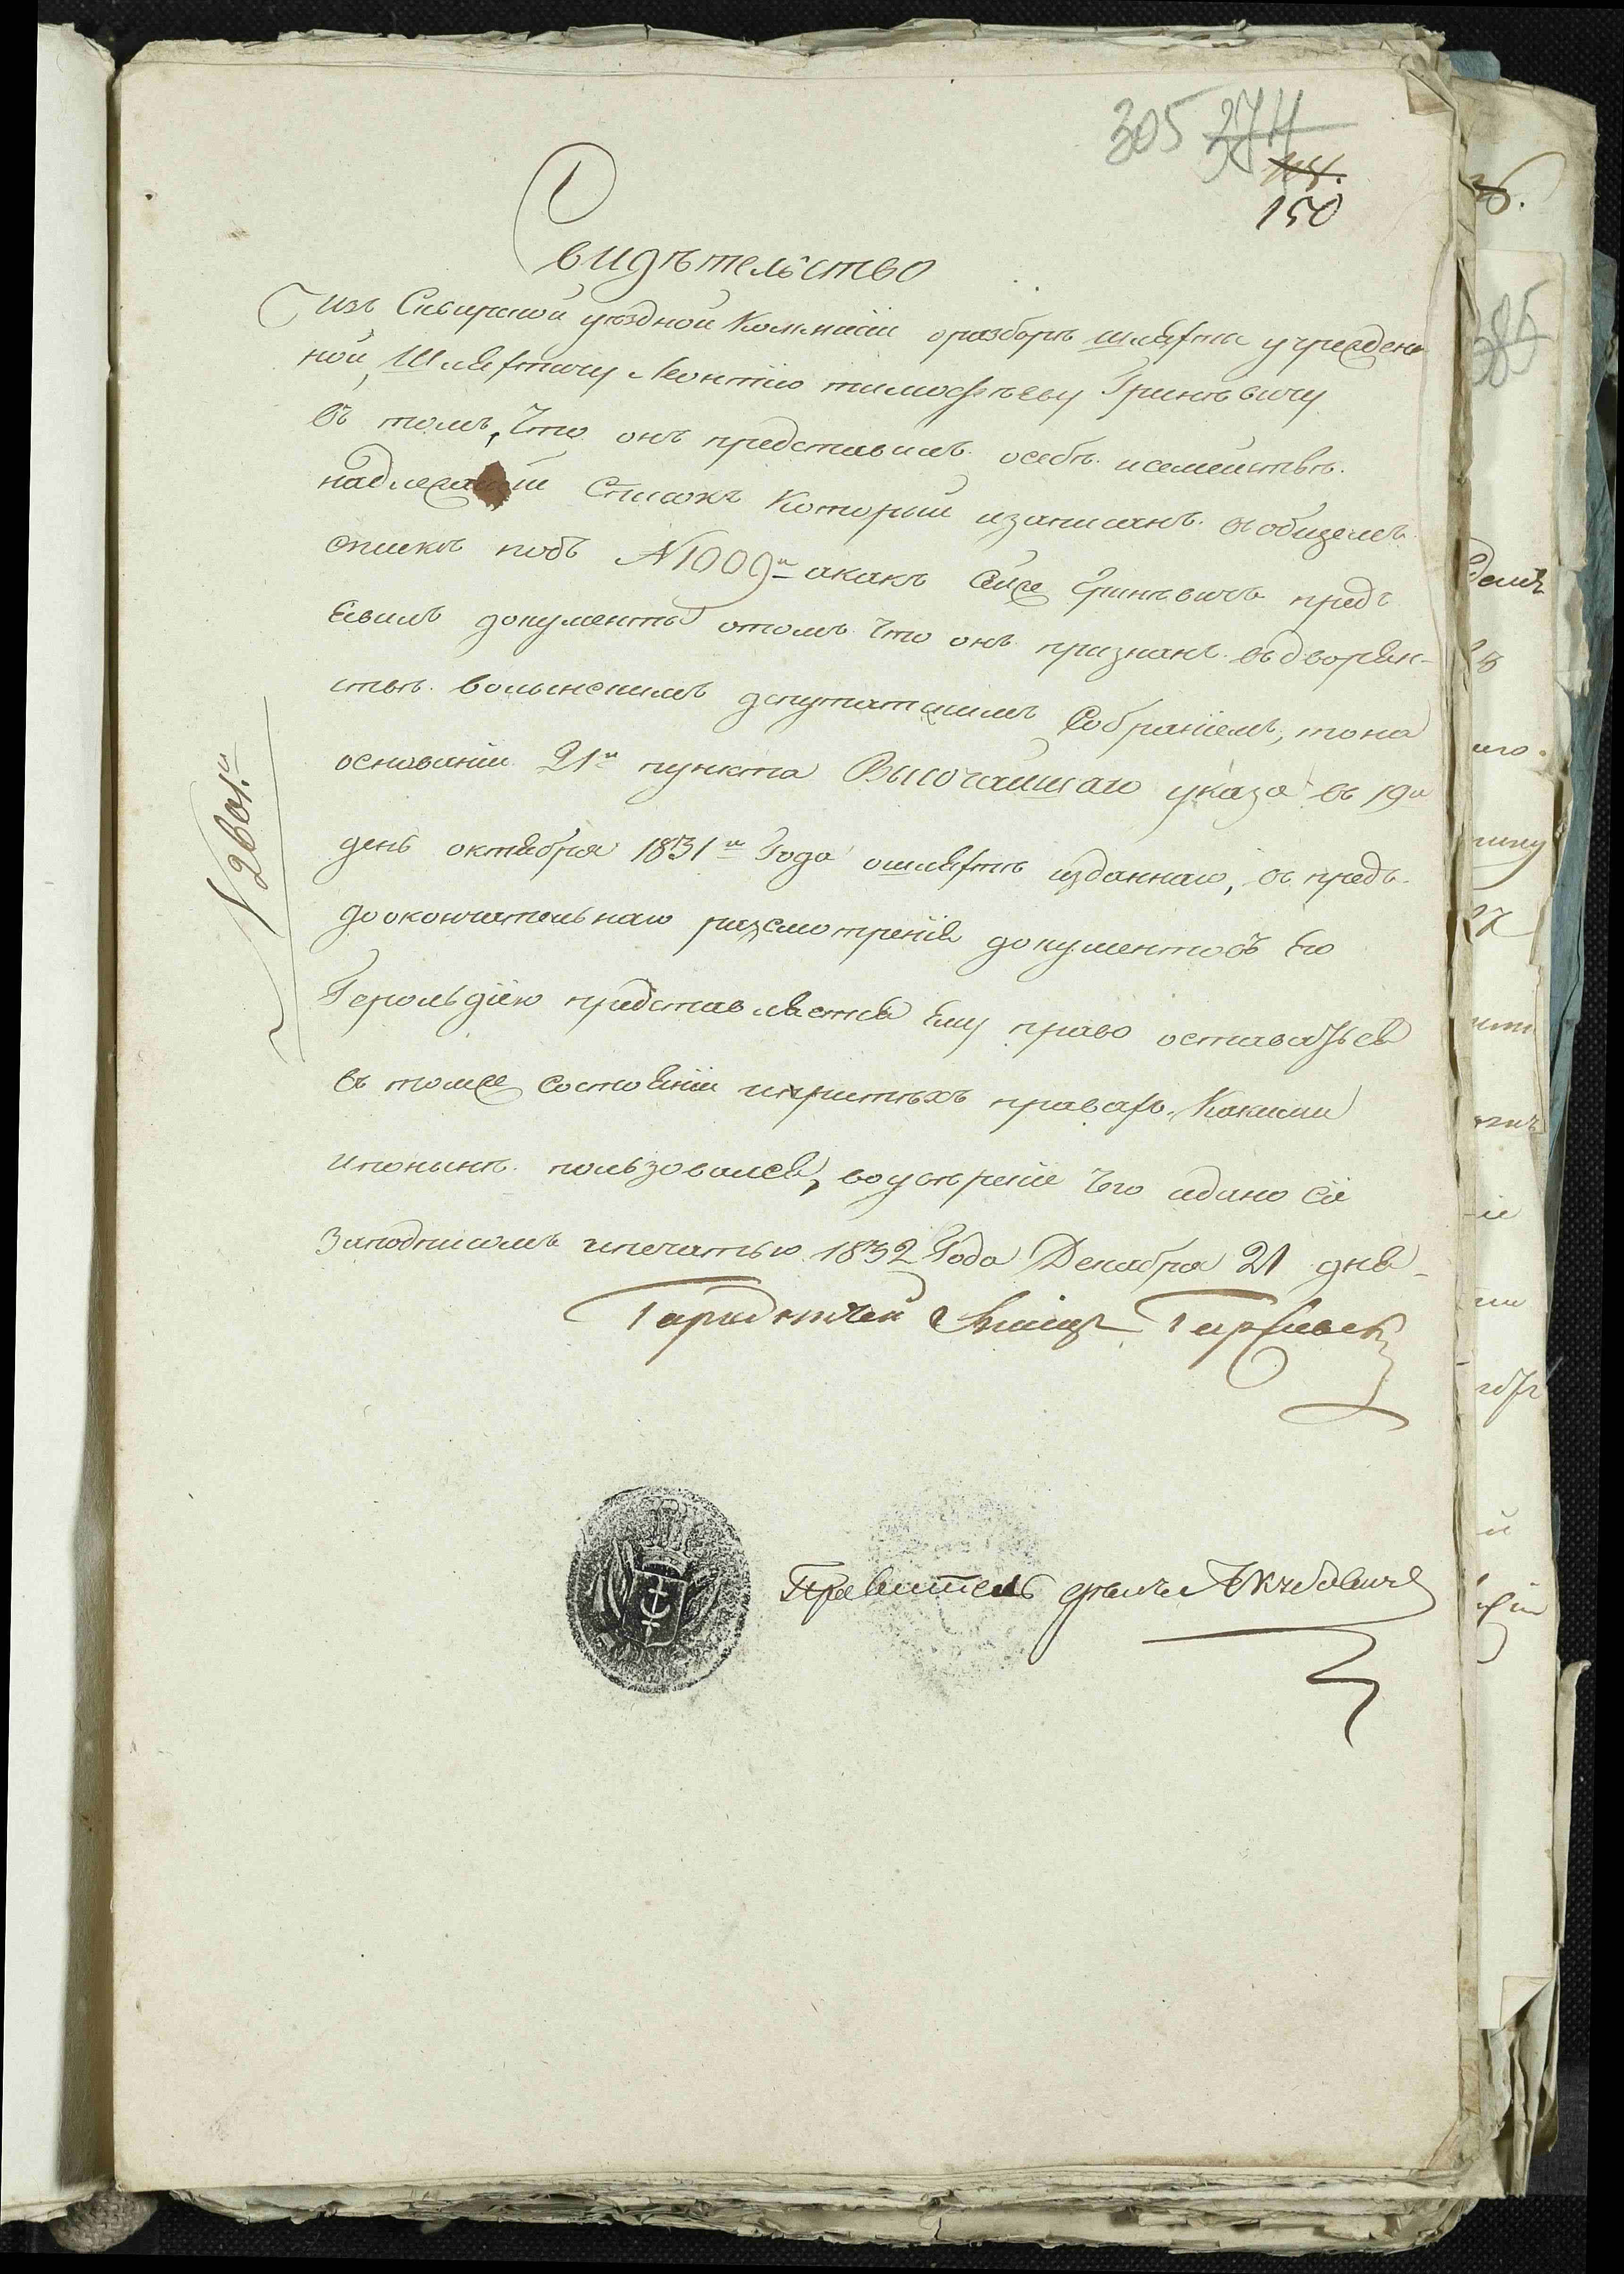 305 374
118.
150
Свидѣтельство
изъ Сквирской уѣздной Коммисіи о разборѣ шляхты учрежден
ной, Шляхтичу Леонтію тимофѣеву Гринѣвичу
въ томъ, что онъ представилъ о себѣ и семействѣ
надлежащій Списокъ который и записанъ въ общемъ
спискѣ подъ N 1009м а какъ Сей же Гринѣвичъ предъ
явилъ документы о томъ что онъ признанъ въ дворян-
ствѣ волынскимъ депутатскимъ Собраніемъ, то на
основаніи 21го пункта Высочайшаго указа въ 19й
день октября 1831го Года о шляхтѣ изданнаго, въ предъ
до окончательнаго разсмотренія документовъ Его
Герольдіею представляется Ему право оставаться
въ томже состояніи и при тѣхъ правахъ, Какими
и понынѣ пользовался, во увѣреніе чего и дано Сіе
За подписомъ и печатью 1832 Года Декабря 21 дня
N 2601й
Правитель